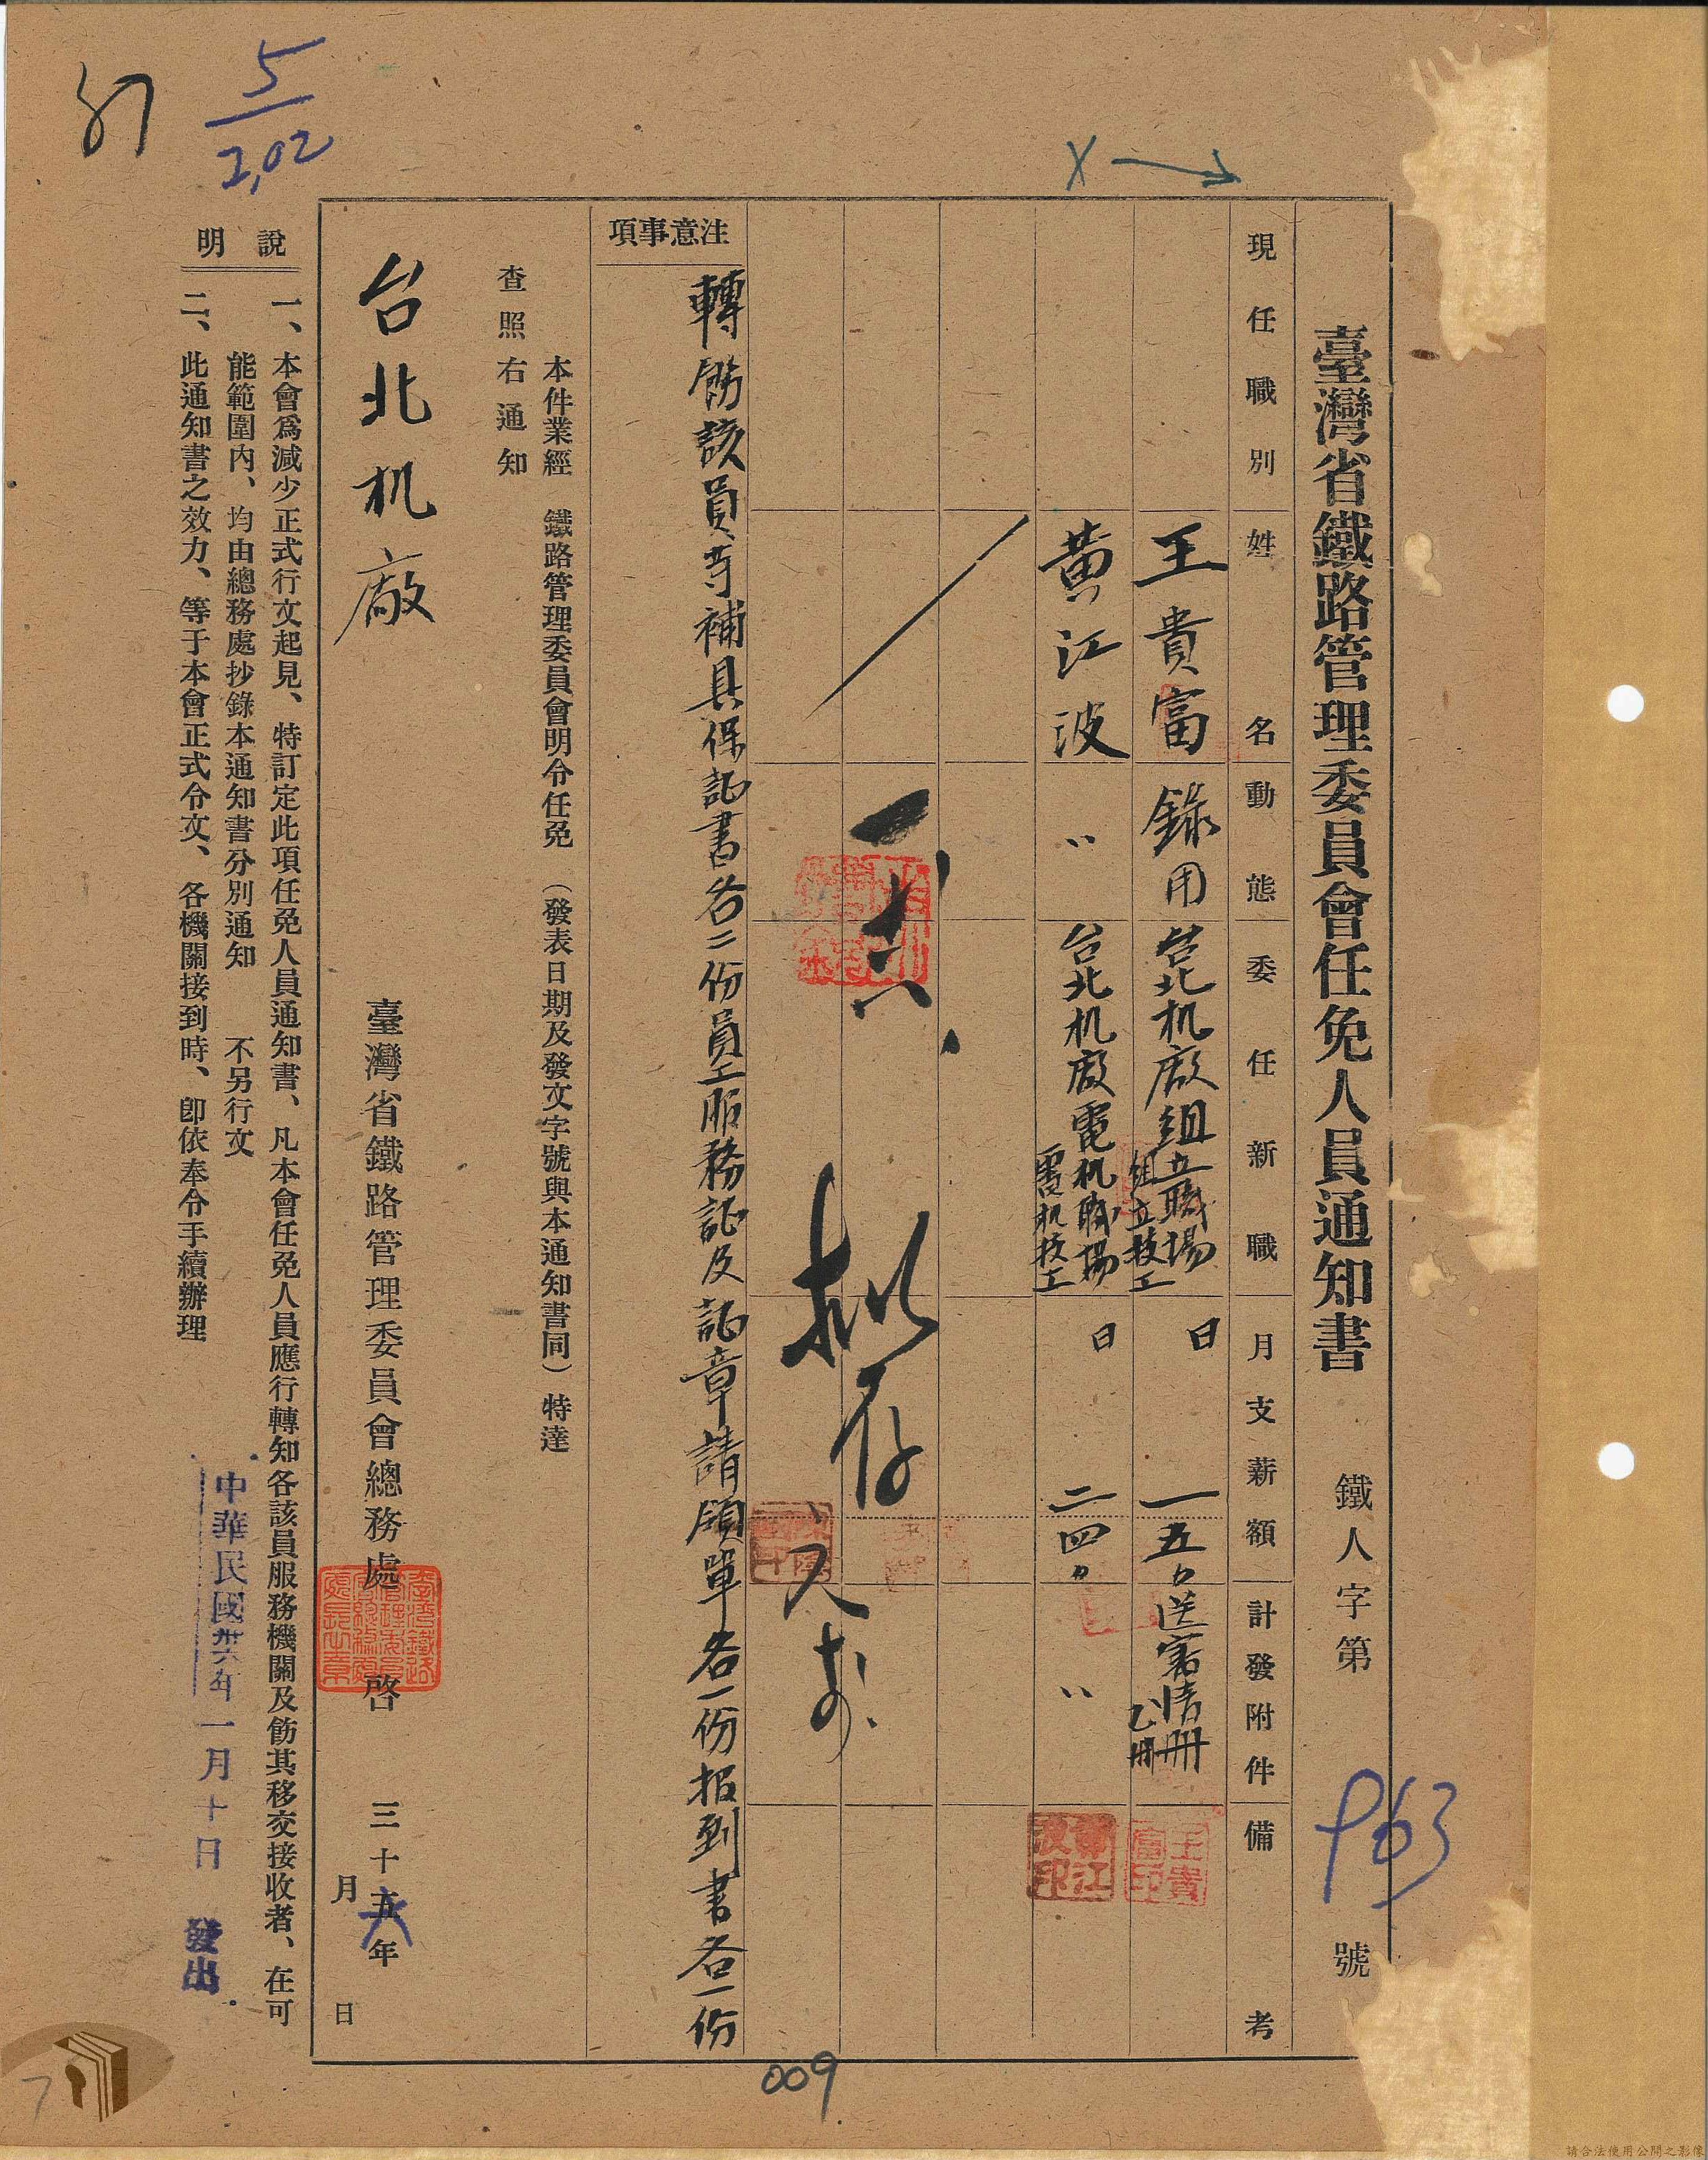 臺灣省鐵路管理委員會任免人員通知書 鐵人字第963號
現任職別 姓名 動態 委任新職 月支薪額 計發附件 備考
王貴富 錄用 台北机廠組立職場 組立技工 日 一五
黃江波 〃 台北机廠電机職場 電机技工 日 二四 〃
王貴富印
黃江波印
批存
注意事項
轉飭該員等補具保証書各二份員工服務証及証章請領單各一份报到書各一份
本件業經 鐵路管理委員會明令任免 （發表日期及發文字號與本通知書同）特達
查照右通知
台北机廠
臺灣省鐵路管理委員會總務處 啓 三十五年 月 日
六
說明
一、本會爲減少正式行文起見、特訂定此項任免人員通知書、凡本會任免人員應行轉知各該員服務機關及飭其移交接收者、在可
能範圍內、均由總務處抄錄本通知書分別通知 不另行文
二、此通知書之效力、等于本會正式令文、各機關接到時、卽依奉令手續辦理
中華民國卅六年一月十日 發出
5
2,02
X
009
7
請合法使用公開之影像